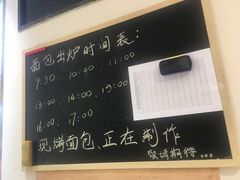 面包出炉时间表:
9:30、10:00、11:00
13:00、14:00、15:00
16:00、17:00
现烤面包,正在制作
敬请期待